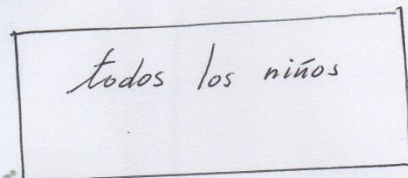 todos los niños